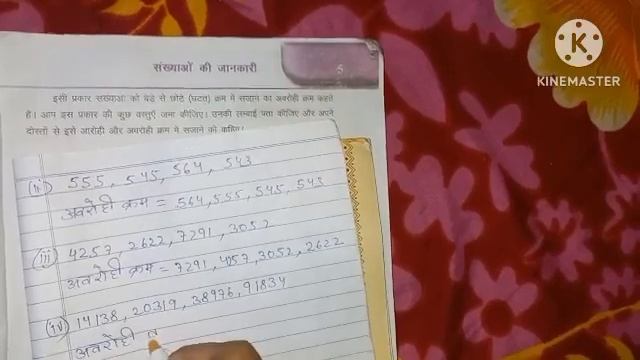 संख्याओं की जानकारी
5
इसी प्रकार संख्याओं को बड़े से छोटे (घटते) क्रम में सजाने को अवरोही क्रम कहते
हैं। आप इस प्रकार की कुछ वस्तुएँ जमा कीजिए। उनकी लम्बाई पता कीजिए और अपने
दोस्तों से इसे आरोही और अवरोही क्रम में सजाने को कहिए।
(ii) 555, 545, 564, 543
अवरोही क्रम = 564, 555, 545, 543
(iii) 4257, 2622, 7291, 3052
अवरोही क्रम = 7291, 4257, 3052, 2622
(iv) 14138, 20319, 38976, 91834
अवरोही
KINEMASTER